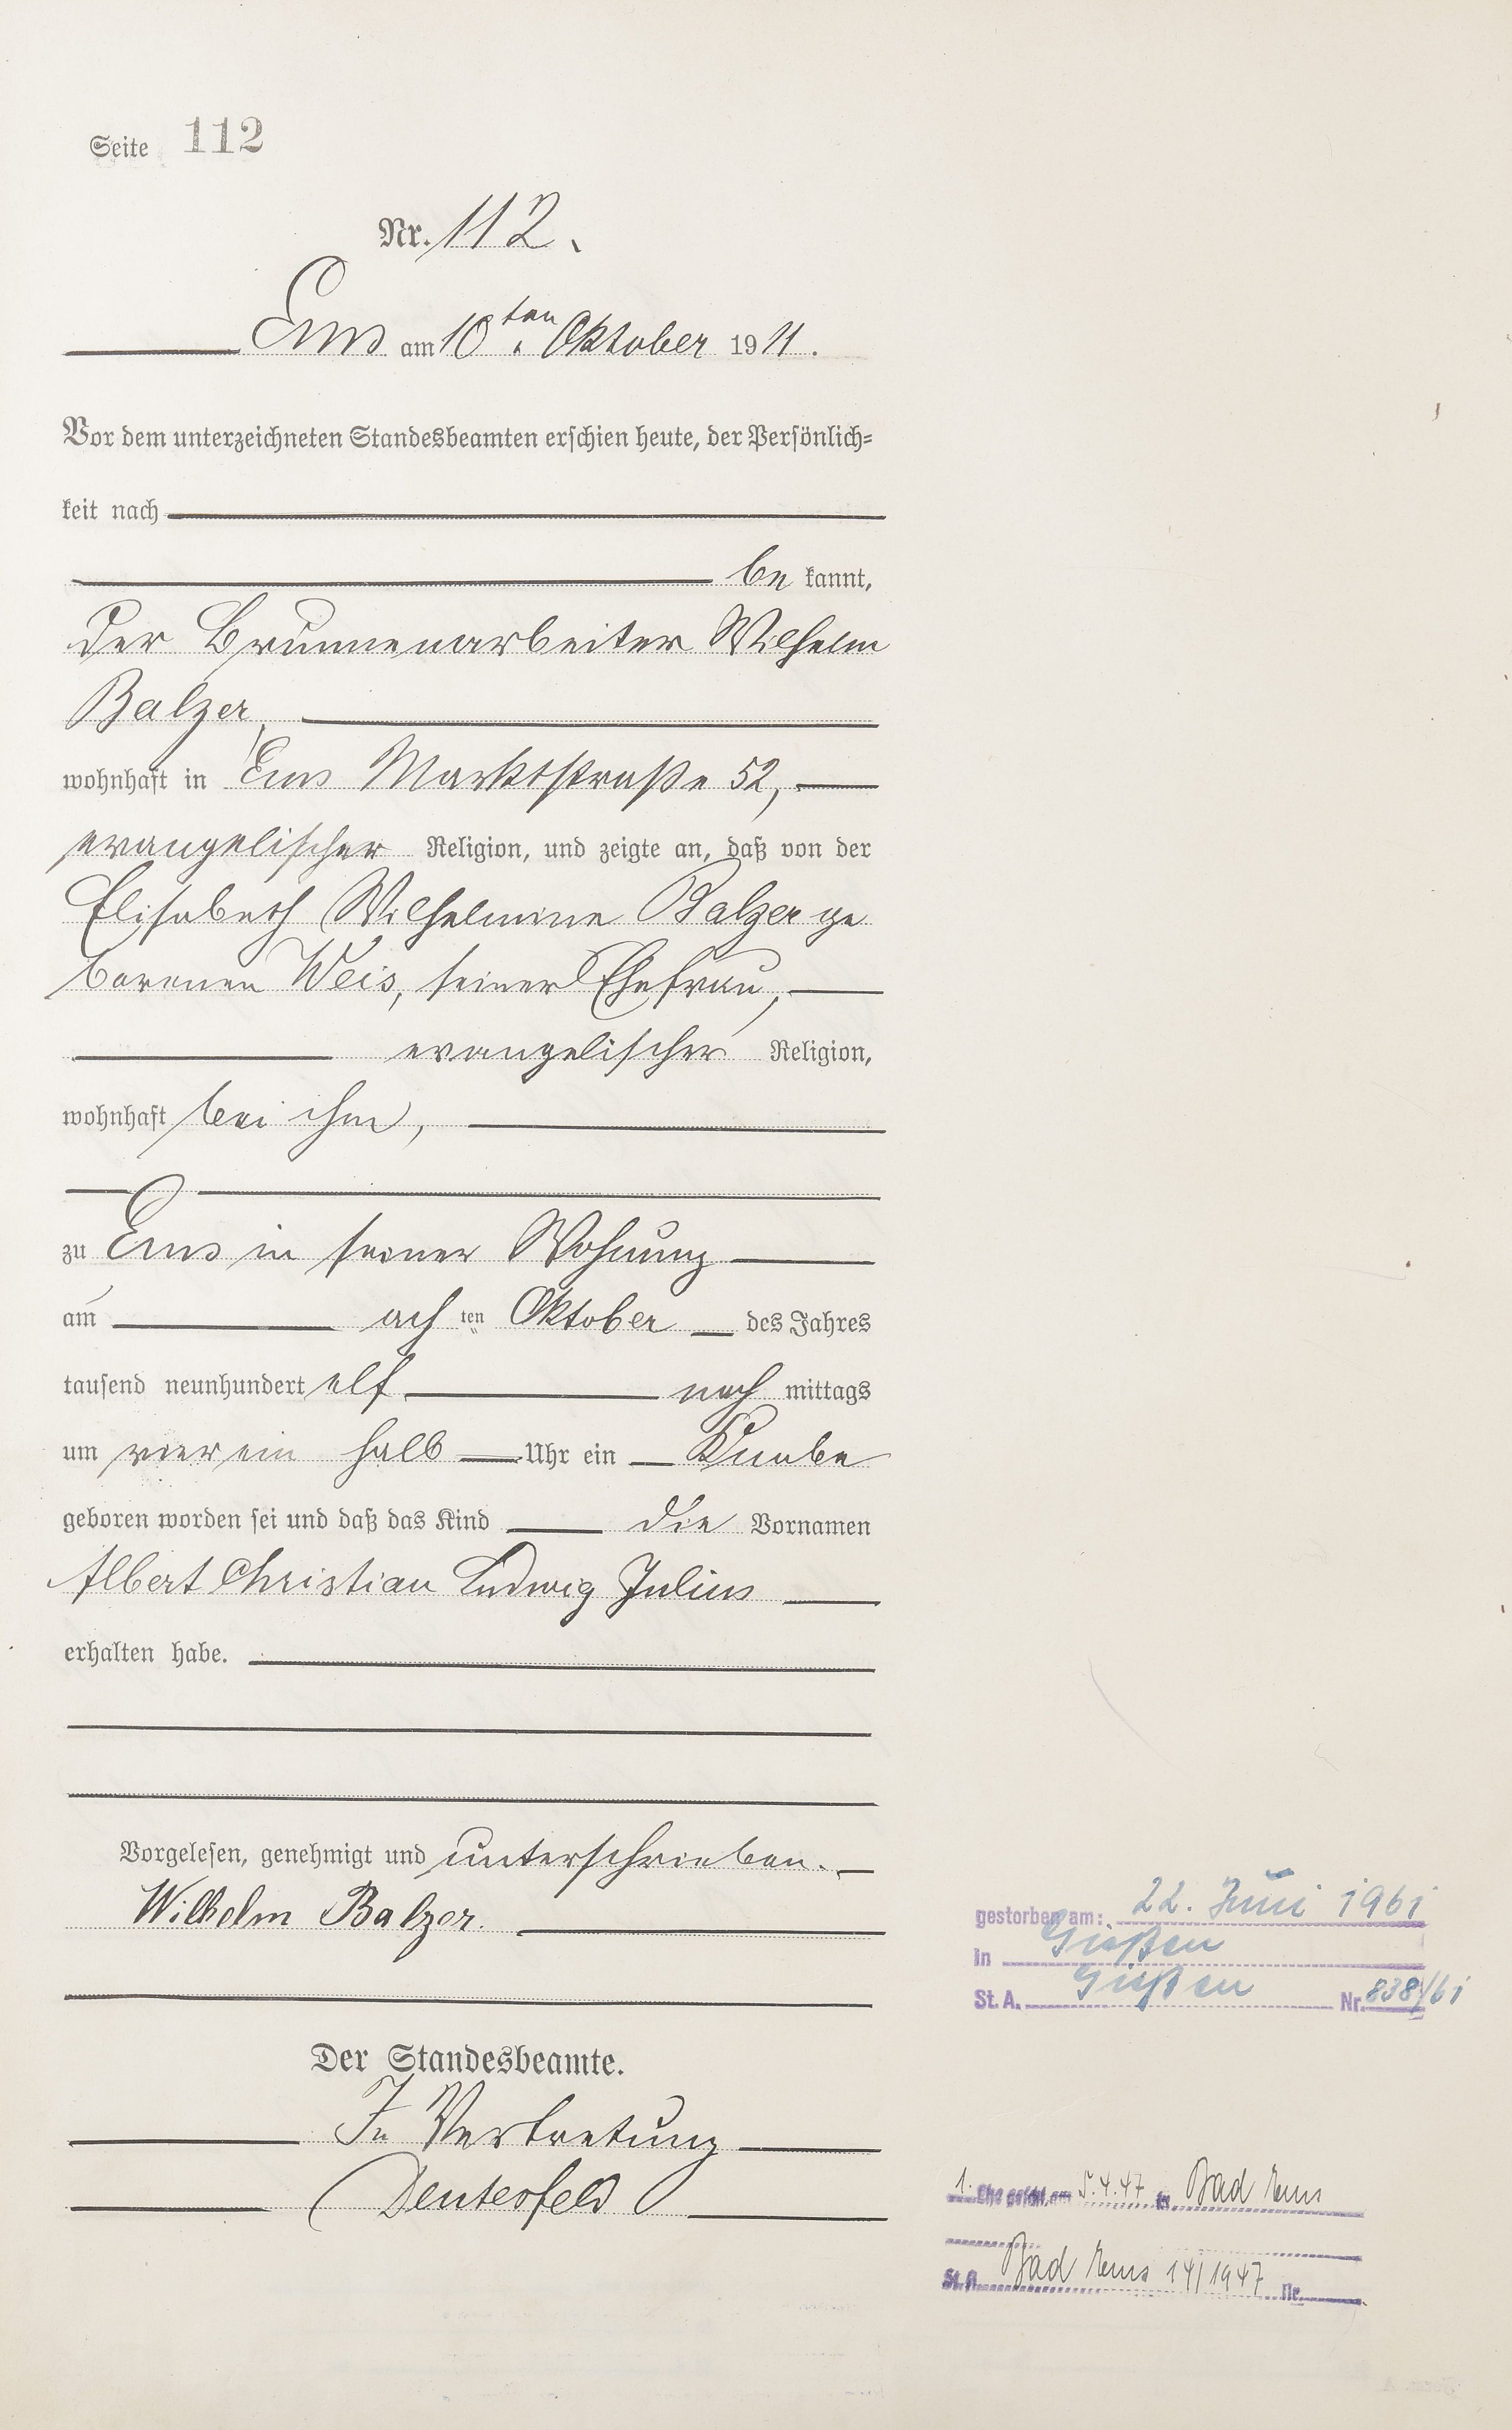 Seite 112
Nr. 112.
Ems am 10ten Oktober 1911.
Vor dem unterzeichneten Standesbeamten erschien heute, der Persönlich=
keit nach
be kannt,
der Brunnenarbeiter Wilhelm
Balzer,
wohnhaft in Ems Marktstraße 52,
evangelischer Religion, und zeigte an, daß von der
Elisabeth Wilhelmine Balzer ge
borenen Weis, seiner Ehefrau,
evangelischer Religion,
wohnhaft bei ihm,
zu Ems in seiner Wohnung
am ach ten Oktober des Jahres
tausend neunhundert elf nach mittags
um vier ein halb Uhr ein Knabe
geboren worden sei und daß das Kind die Vornamen
Albert Christian Ludwig Julius
erhalten habe.
Vorgelesen, genehmigt und unterschrieben.
Wilhelm Balzer.
Der Standesbeamte.
In Vertretung
Deuterfeld
gestorben am: 22. Juni 1961
in Gießen
St. A. Gießen Nr. 838/61
1. Ehe geschl. am 5.4.47 in Bad Ems
St. A. Bad Ems 14/1947 Nr.